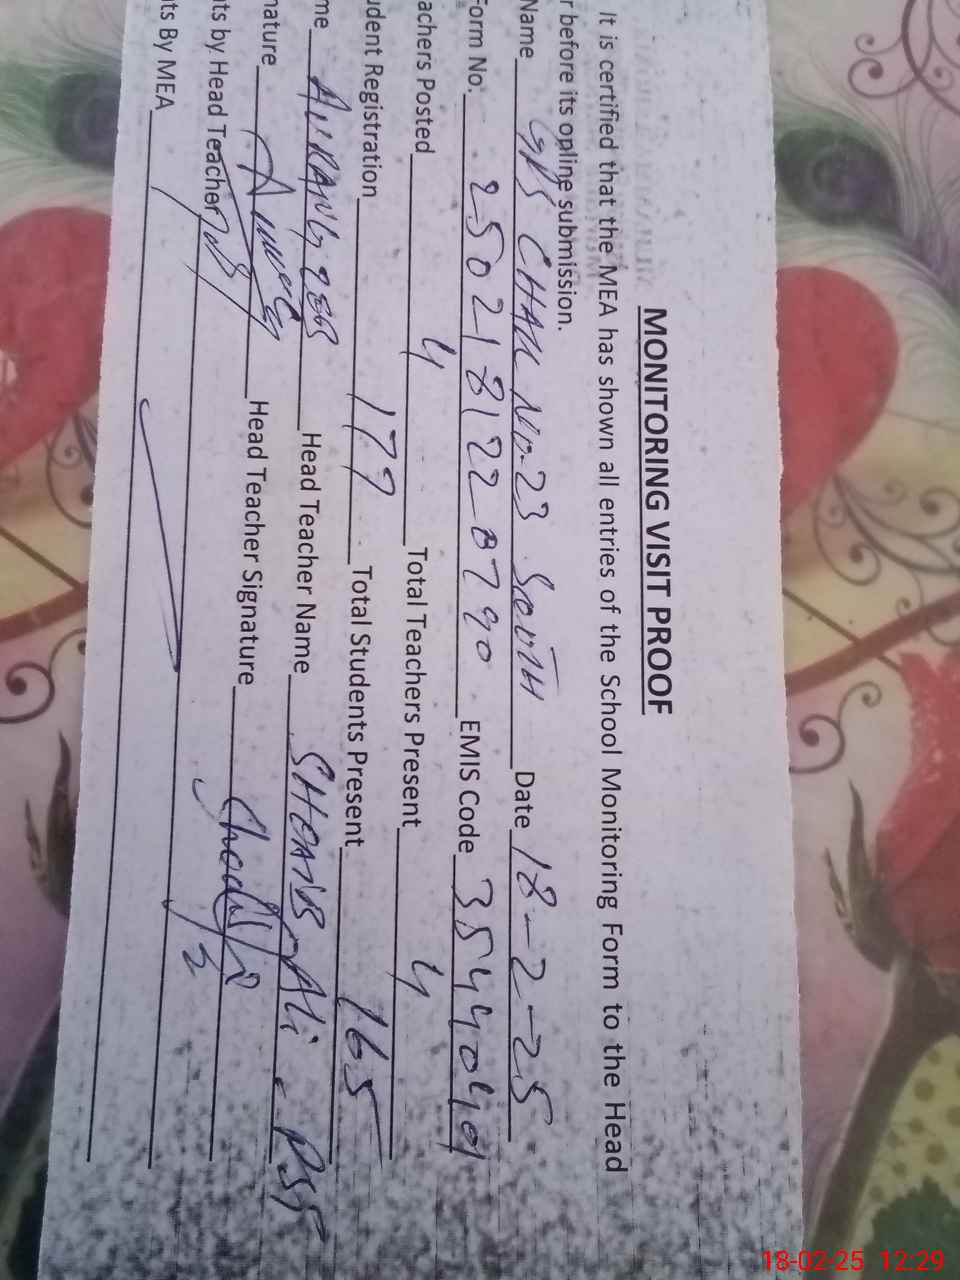 MONITORING VISIT PROOF
It is certified that the MEA has shown all entries of the School Monitoring Form to the Head
r before its online submission.
Name GPS CHAK No.23 SOUTH Date 18-2-25
Form No. 25021812207 90 EMIS Code 38540401
achers Posted 4 Total Teachers Present 4
udent Registration 179 Total Students Present 165
me AURANGZEB Head Teacher Name SHOAIB Ali PST
nature Head Teacher Signature
ts by Head Teacher
ts By MEA
18-02-25 12:29